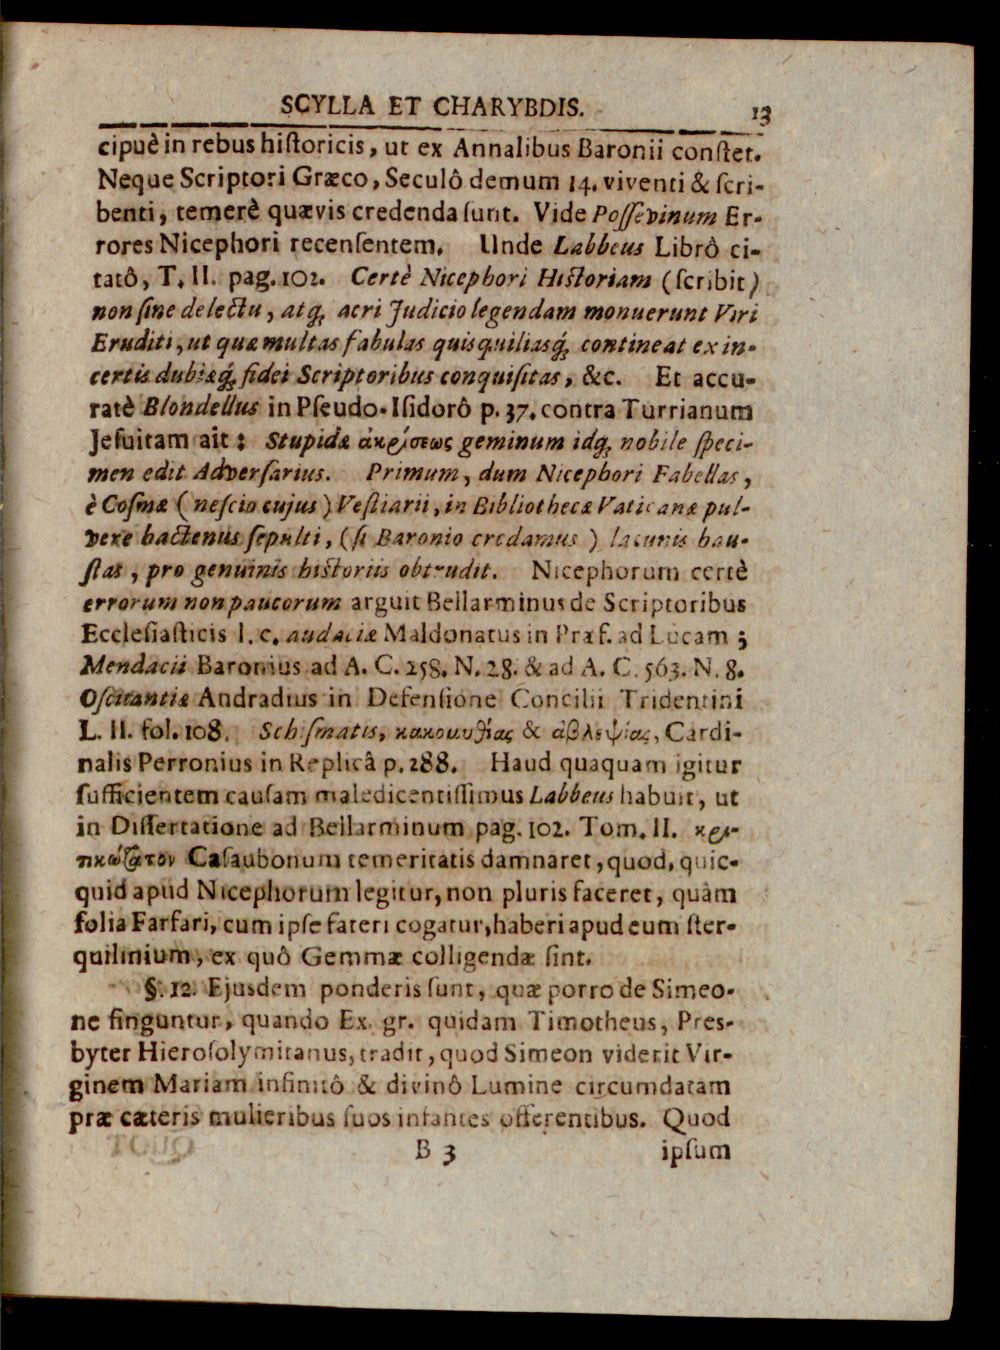 SCYLLA ET CHARYBDIS. 13
cipuè in rebus hiſtoricis, ut ex Annalibus Baronii conſtet.
Neque Scriptori Græco, Seculô demum 14. viventi & ſcri-
benti, temerè quævis credenda ſunt. Vide Poſſevinum Er-
rores Nicephori recenſentem. Unde Labbeus Librô ci-
tatô, T. II. pag. 102. Certè Nicephori Hiſtoriam (ſcribit)
non ſine delectu, atq; acri Judicio legendam monuerunt Viri
Eruditi, ut quæ multas fabulas quisquiliasq; contineat ex in-
certis dubiisq; fidei Scriptoribus conquiſitas, &c. Et accu-
ratè Blondellus in Pſeudo-Iſidorô p. 37. contra Turrianum
Jeſuitam ait: Stupidæ ἀκρίσεως geminum idq; nobile ſpeci-
men edit Adverſarius. Primum, dum Nicephori Fabellas,
è Coſmæ (neſcio cujus) Veſtiarii, in Bibliothecæ Vaticanæ pul-
vere hactenus ſepulti, (ſi Baronio credamus) lacunis hau-
ſtas, pro genuinis hiſtoriis obtrudit. Nicephorum certè
errorum non paucorum arguit Bellarminus de Scriptoribus
Eccleſiaſticis l. c. audaciæ Maldonatus in Præf. ad Lucam;
Mendacii Baronius ad A. C. 258. N. 28. & ad A. C. 563. N. 8.
Oſcitantiæ Andradius in Defenſione Concilii Tridentini
L. II. fol. 108. Schiſmatis, κακομυθίας & ἀβλεψίας, Cardi-
nalis Perronius in Replicâ p. 288. Haud quaquam igitur
ſufficientem cauſam maledicentiſſimus Labbeus habuit, ut
in Diſſertatione ad Bellarminum pag. 102. Tom. II. κρι-
τικώτατον Caſaubonum temeritatis damnaret, quod, quic-
quid apud Nicephorum legitur, non pluris faceret, quàm
folia Farfari, cum ipſe fateri cogatur, haberi apud eum ſter-
quilinium, ex quô Gemmæ colligendæ ſint.
§. 12. Ejusdem ponderis ſunt, quæ porro de Simeo-
ne finguntur, quando Ex. gr. quidam Timotheus, Pres-
byter Hieroſolymitanus, tradit, quod Simeon viderit Vir-
ginem Mariam infinitô & divinô Lumine circumdatam
præ cæteris mulieribus ſuos infantes offerentibus. Quod
B 3 ipſum